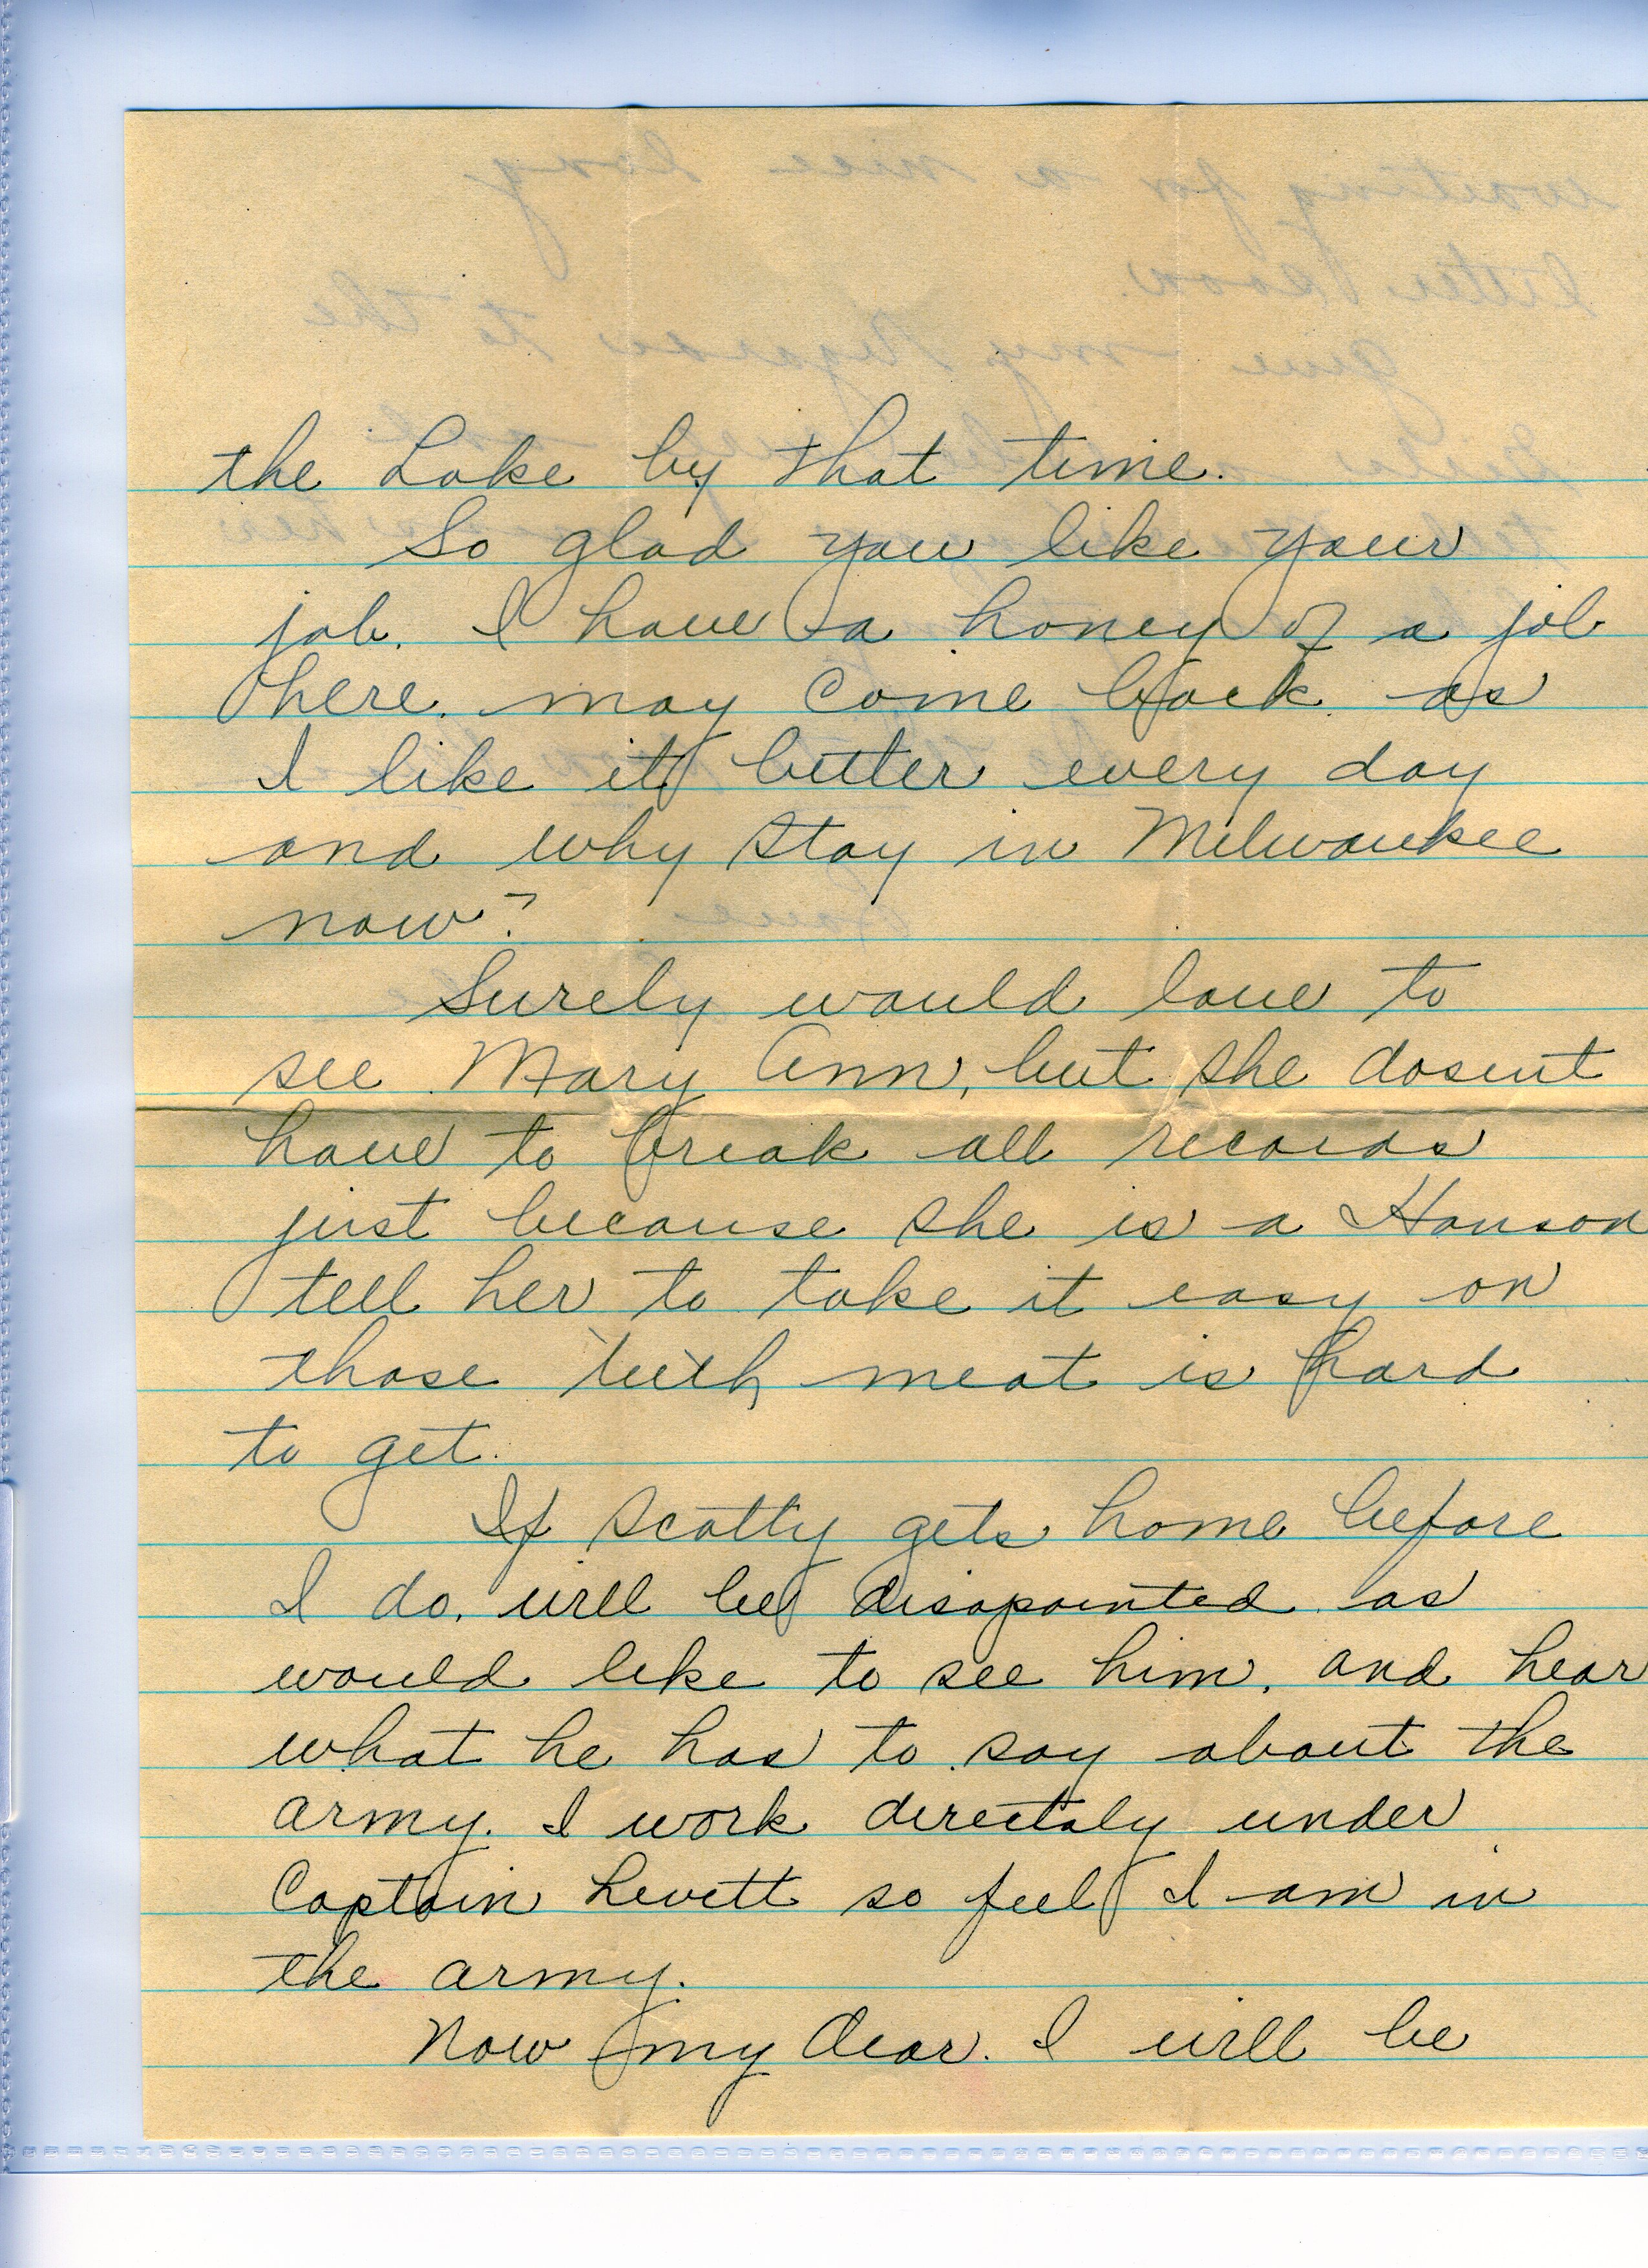 the Lake by that time.
So glad you like your
job. I have a honey of a job
here. may come back as
I like it better every day
and why stay in Milwaukee
now?
Surely would love to
see Mary Ann, but she dosent
have to break all records
just because she is a Hanson
tell her to take it easy on
those teeth meat is hard
to get.
If Scotty gets home before
I do. will be disapointed as
would like to see him. and hear
what he has to say about the
army. I work directaly under
Captain Levett so feel I am in
the army.
Now my dear. I will be